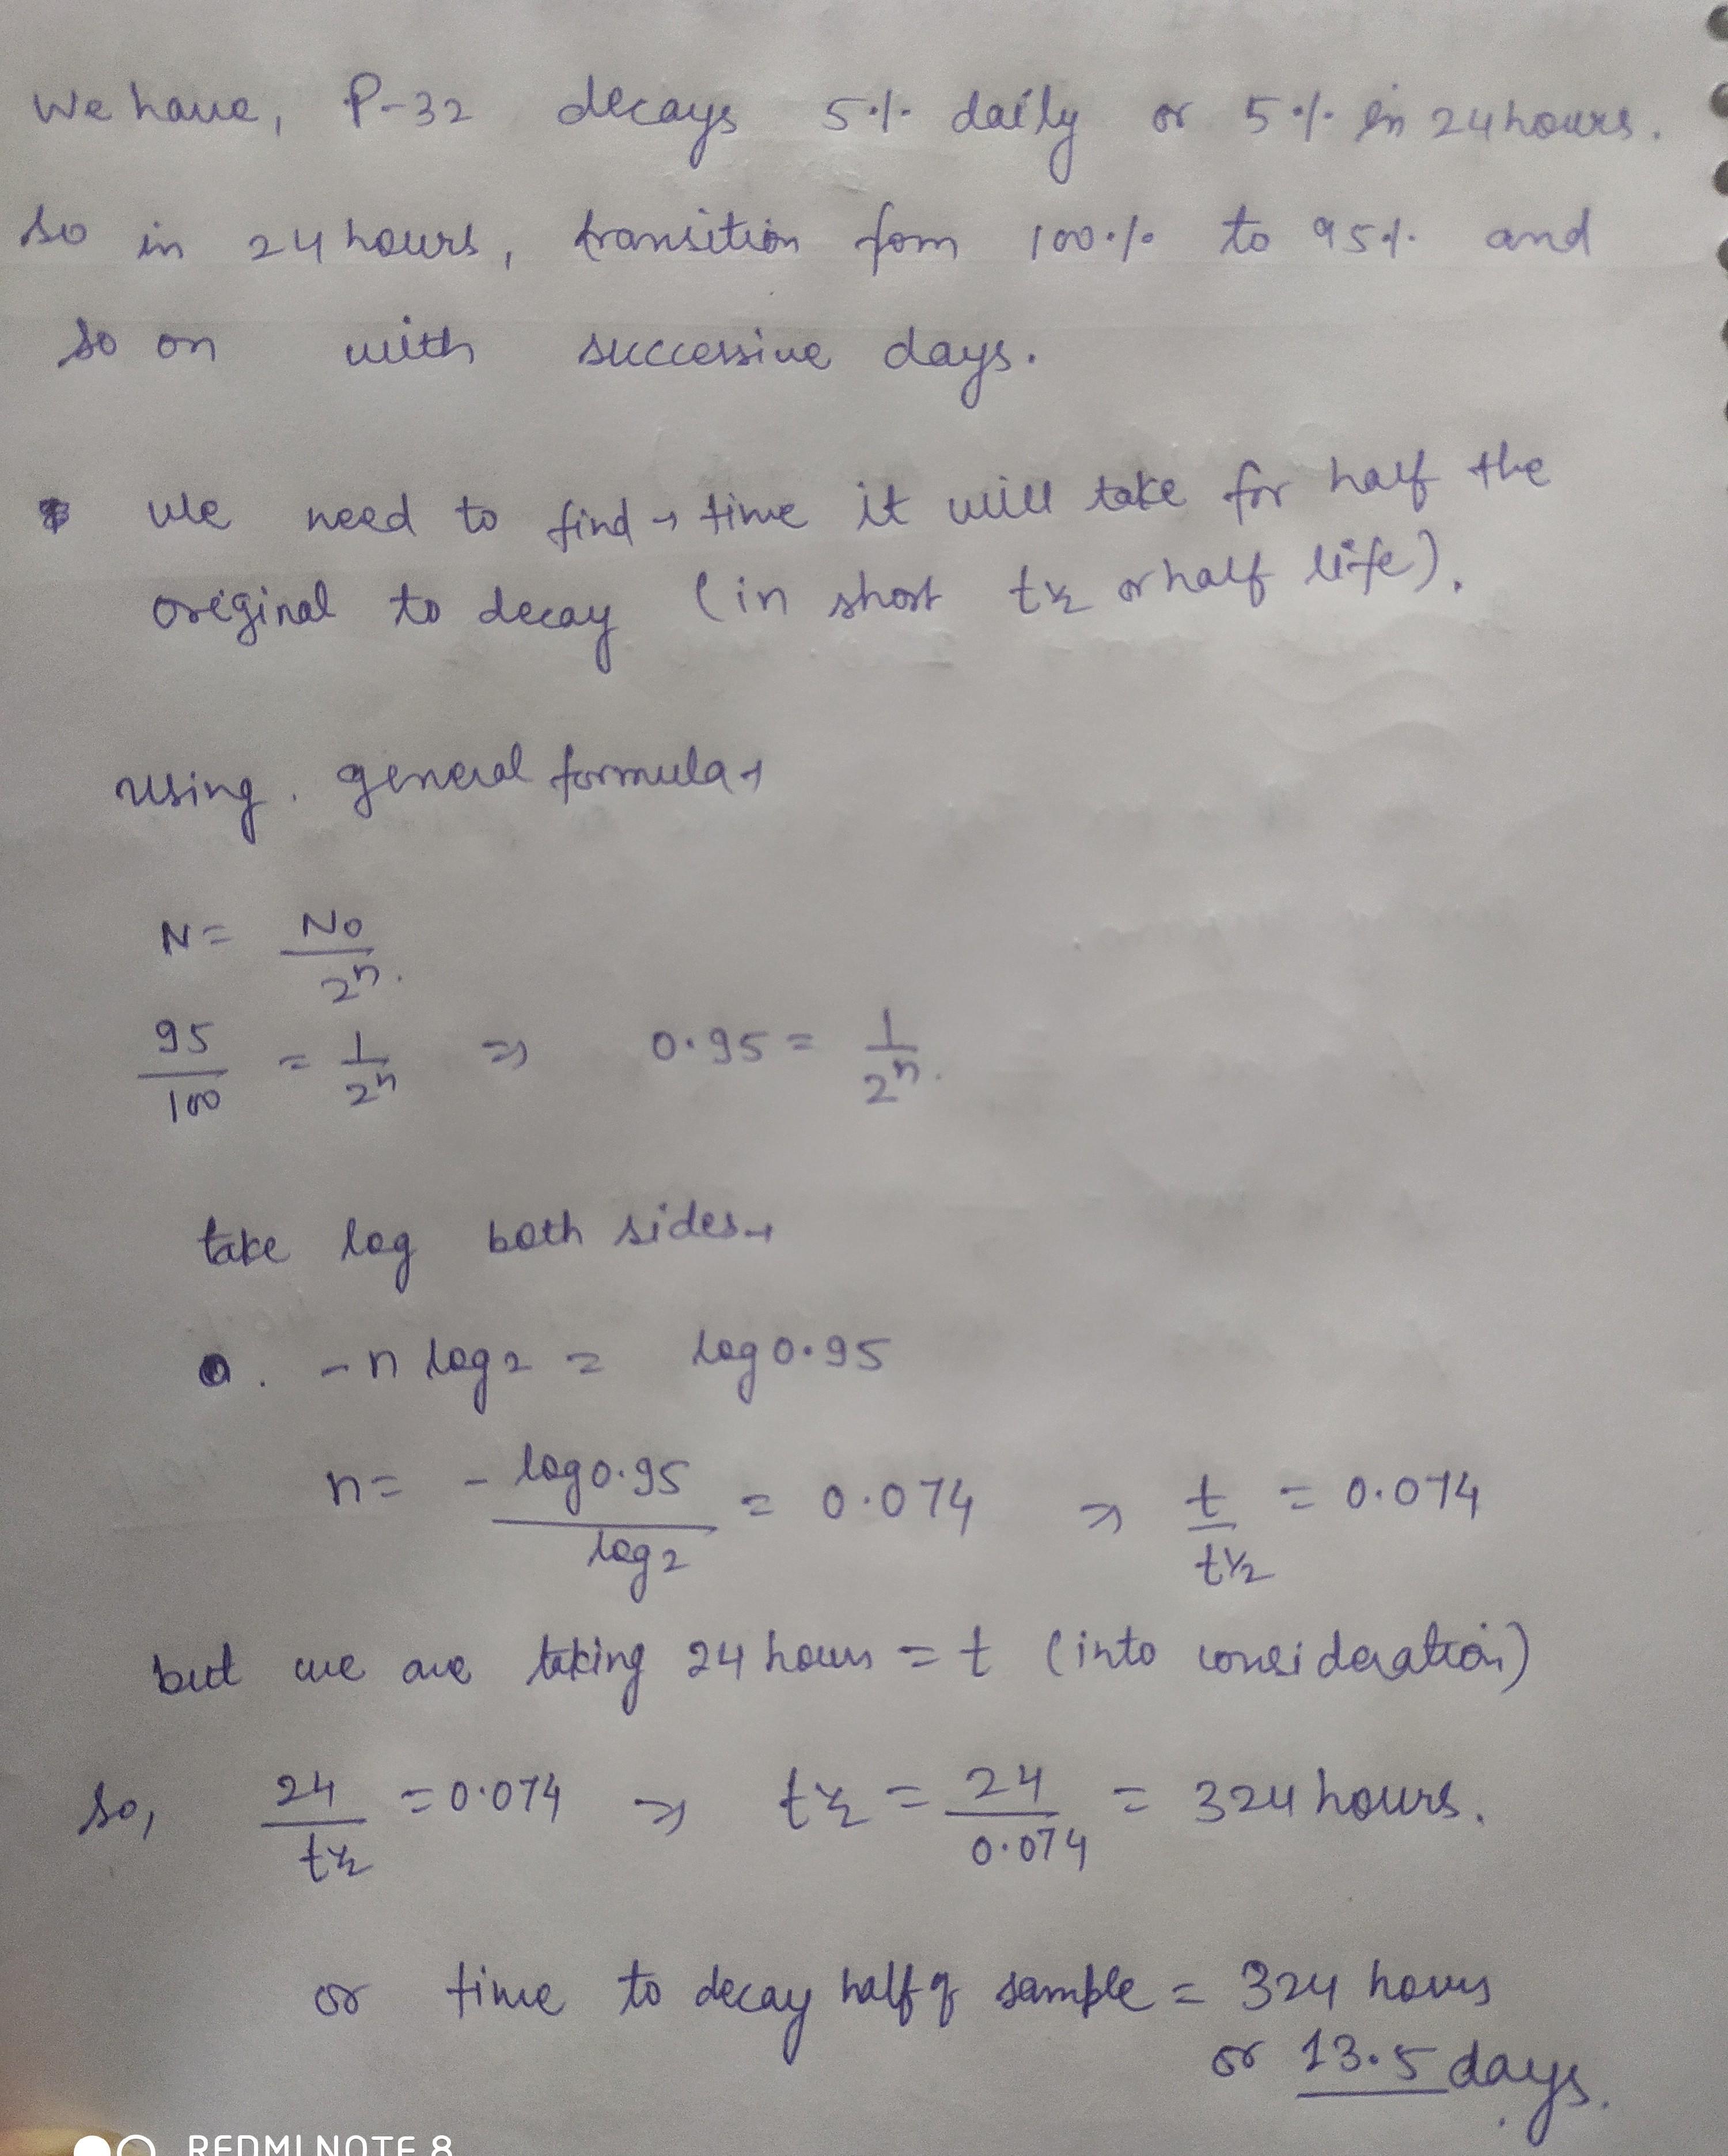 We have, P-32 decays 5% daily or 5% in 24 hours.
so in 24 hours, transition fom 100% to 95% and
so on with successive days.
We need to find → time it will take for half the
original to decay (in short t½ or half life).
Using. general formula →
N = No / 2^n.
95/100 = 1/2^n ⇒ 0.95 = 1/2^n.
take log both sides →
. -n log 2 = log 0.95
n = - log 0.95 / log 2 = 0.074 ⇒ t / t½ = 0.074
but we are taking 24 hours = t (into consideration)
So, 24 / t½ = 0.074 ⇒ t½ = 24 / 0.074 = 324 hours.
or time to decay half of sample = 324 hours
or 13.5 days.
REDMI NOTE 8